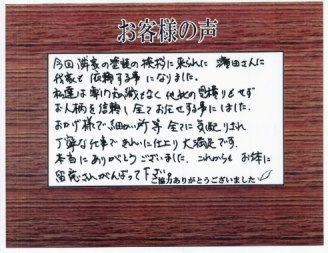 お客様の声
今回 隣家の塗装の挨拶に来られた 縄田さんに
代家を 依頼する事 になりました。
私達は専門知識もなく 他社の見積りもせず
お人柄を信頼し全てお任せする事にしました。
おかげ様で細かい所等 全てに気配りされ
丁寧な仕事できれいに仕上り大満足です。
本当にありがとうございました。これからも お体に
留意されがんばって下さい。
ご協力ありがとうございました